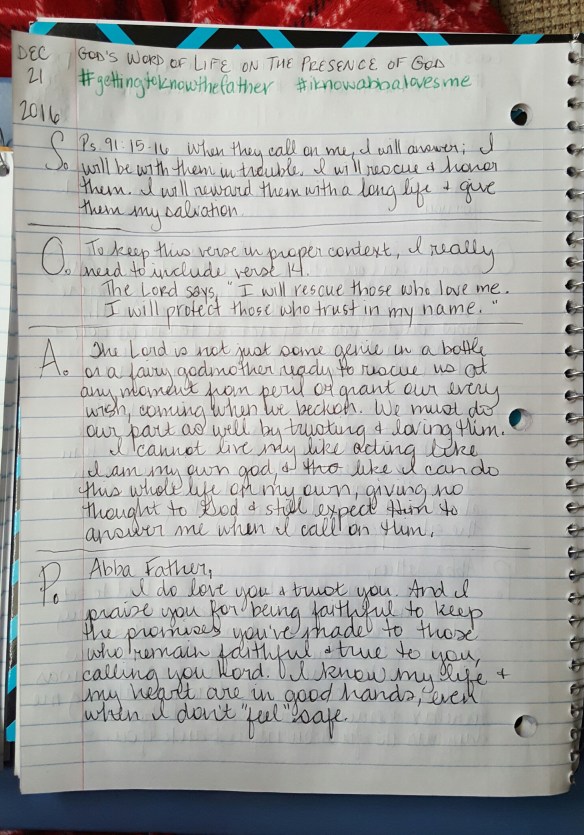 DEC GOD'S WORD OF LIFE ON THE PRESENCE OF GOD
21 #gettingtoknowthefather #iknowabbalovesme
2016
S. Ps. 91:15-16 When they call on me, I will answer; I
will be with them in trouble. I will rescue & honor
them. I will reward them with a long life & give
them my salvation.
O. To keep this verse in proper context, I really
need to include verse 14.
The Lord says, "I will rescue those who love me.
I will protect those who trust in my name."
A. The Lord is not just some genie in a bottle
or a fairy godmother ready to rescue us at
any moment from peril or grant our every
wish, coming when we beckon. We must do
our part as well by trusting & loving Him.
I cannot live my like acting like
I am my own god, & tho like I can do
this whole life on my own, giving no
thought to God & still expect Him to
answer me when I call on Him.
P. Abba Father,
I do love you & trust you. And I
praise you for being faithful to keep
the promises you've made to those
who remain faithful & true to you,
calling you Lord. I know my life &
my heart are in good hands, even
when I don't "feel" safe.